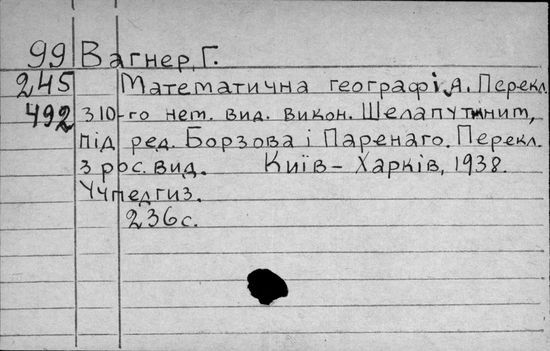 99 Вагнер, Г.
245 Математична географія. Перекл.
492 з 10-го нет. вид. викон. Шелапутинит,
під ред. Борзова і Паренаго. Перекл.
з рос. вид. Київ - Харків, 1938.
Учпедгиз.
236с.